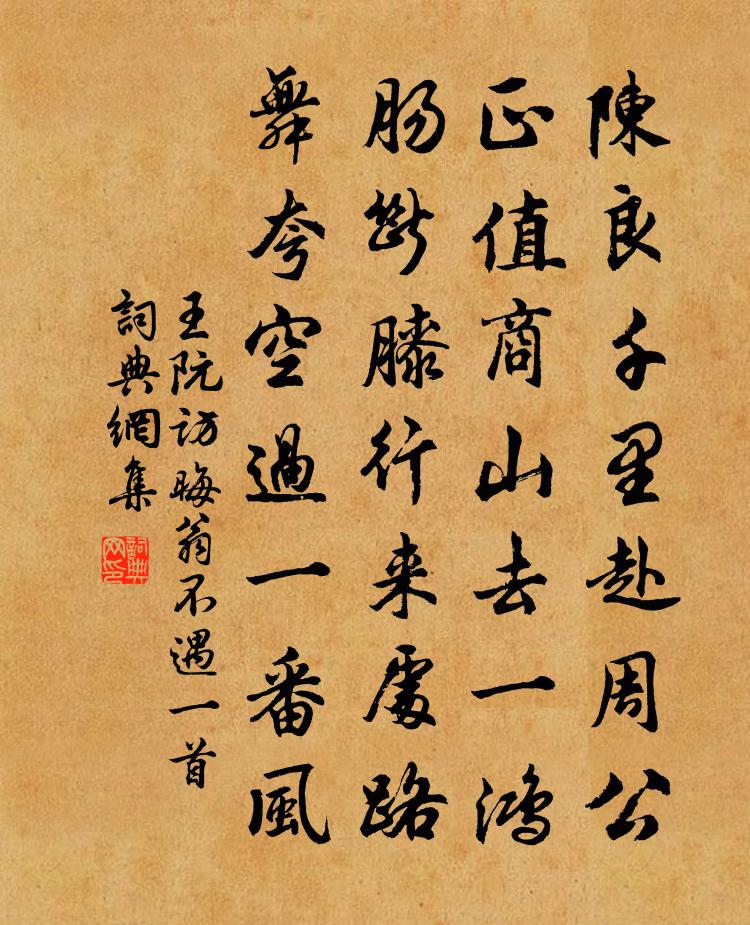 陳良千里赴周公
正值商山去一鴻
腸斷膝行来處路
舞夸空過一番風
王阮訪晦翁不遇一首
詞典網集
詞典网印